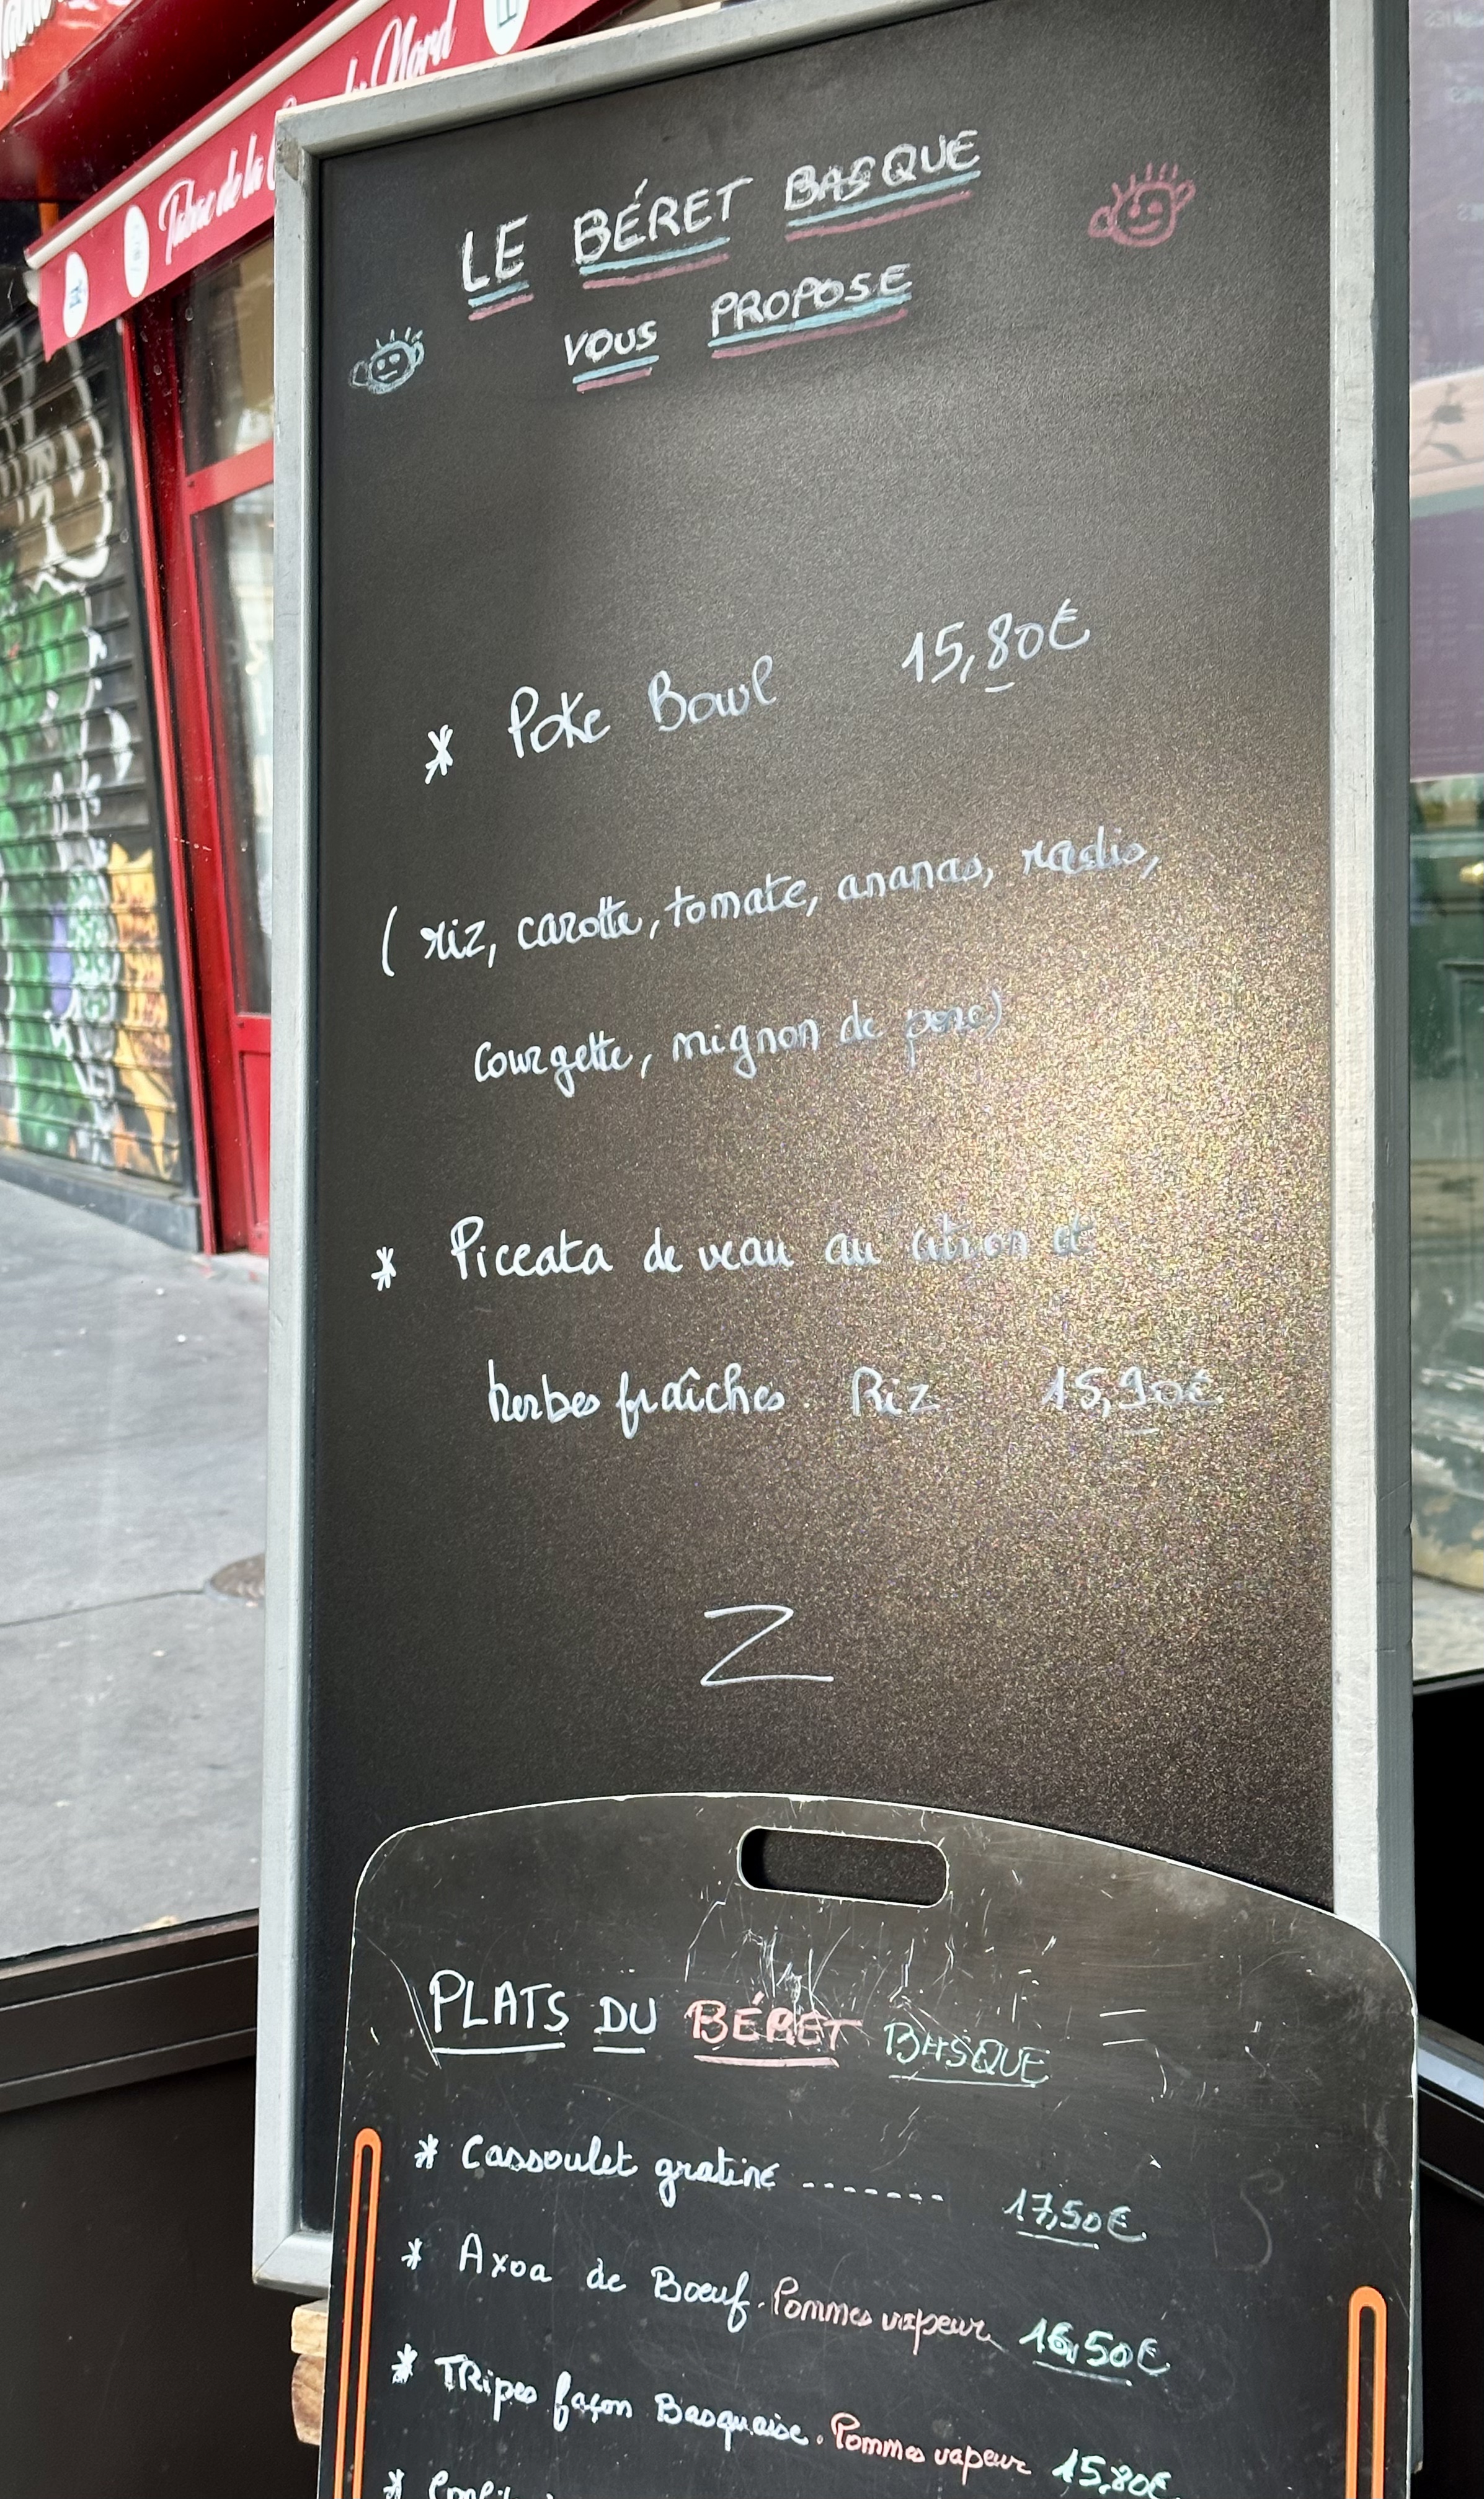 Tabac de la
du Nord
LE BÉRET BASQUE
VOUS PROPOSE
* Poke Bowl 15,80€
( riz, carotte, tomate, ananas, radis,
courgette, mignon de porc)
* Piccata de veau au citron et
herbes fraîches. Riz 15,90€
Z
PLATS DU BÉRET BASQUE
* Cassoulet gratiné ------- 17,50€
* Axoa de Boeuf. Pommes vapeur 16,50€
* TRipes façon Basquaise. Pommes vapeur 15,80€